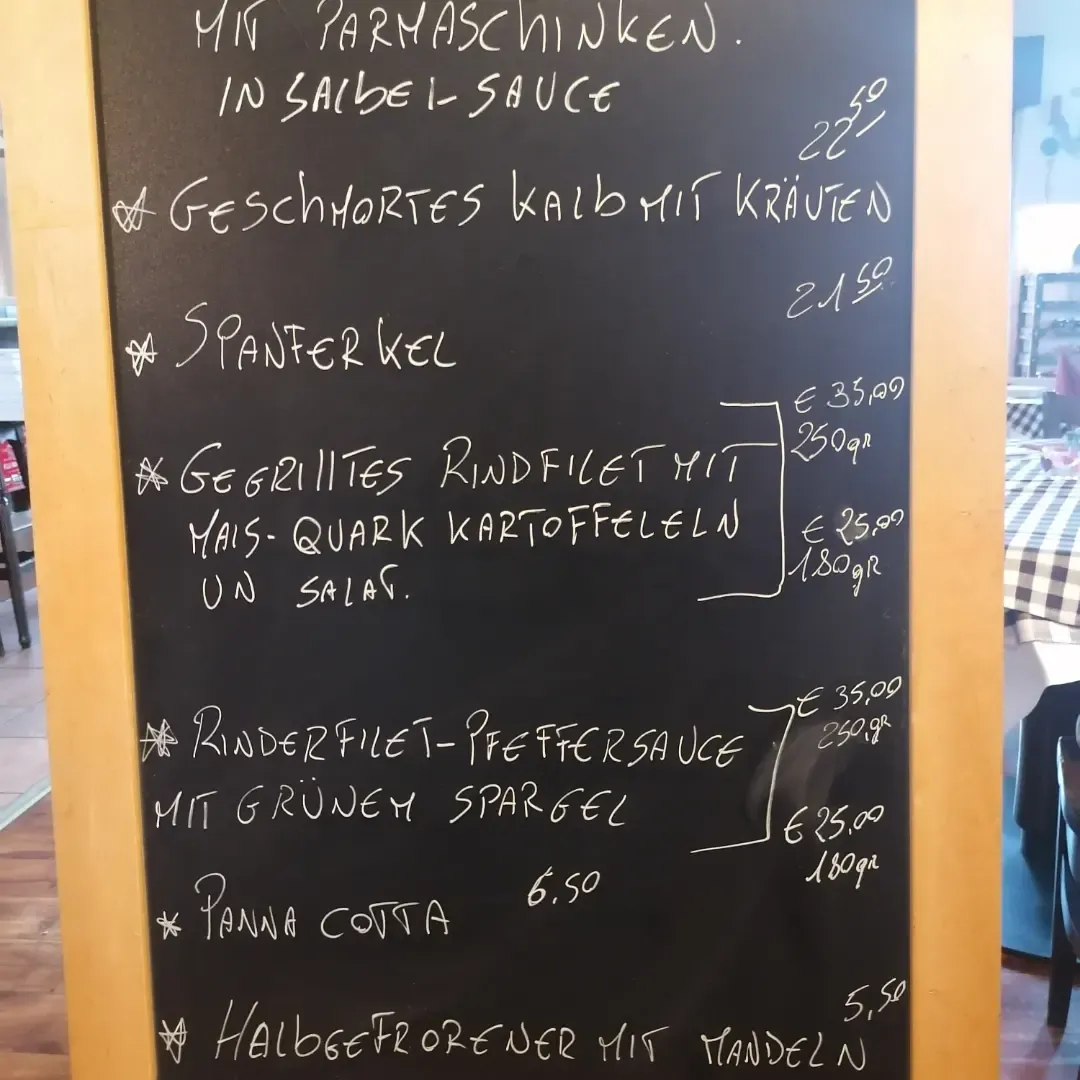 MIT PARMASCHINKEN.
IN SALBEI-SAUCE
22⁵⁰
* GESCHMORTES KALB MIT KRÄUTEN
21⁵⁰
* SPANFERKEL
€ 35,00
250gr
* GEGRILLTES RINDFILET MIT
MAIS-QUARK KARTOFFELELN
€ 25,00
180gr
UN SALAT.
€ 35,00
250,gr
* RINDERFILET-PFEFFERSAUCE
MIT GRÜNEM SPARGEL
€ 25,00
180gr
6.50
* PANNA COTTA
5,50
* HALBGEFRORENER MIT MANDELN